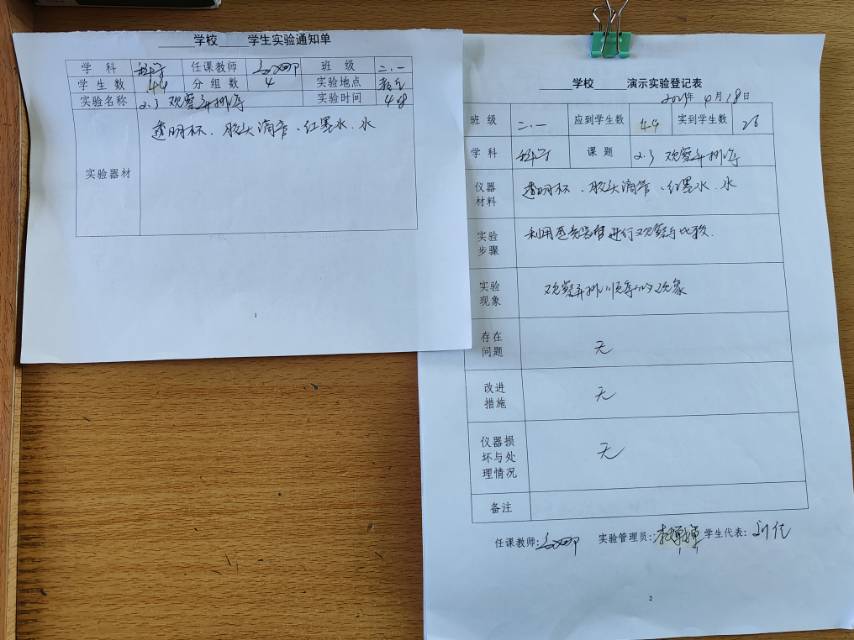 学校 学生实验通知单
学 科 科学 任课教师 班 级 二.一
学生数 44 分组数 4 实验地点 教室
实验名称 2.3 观察与排序 实验时间 4.8
实验器材 透明杯、胶头滴管、红墨水、水
1
学校 演示实验登记表
月18日
班 级 二.一 应到学生数 44 实到学生数
学 科 科学 课 题 2.3 观察与排序
仪器材料 透明杯、胶头滴管、红墨水、水
实验步骤 利用感觉器官进行观察与比较.
实验现象 观察并排顺序的现象
存在问题 无
改进措施 无
仪器损坏与处理情况 无
备注
任课教师: 实验管理员: 学生代表:
2